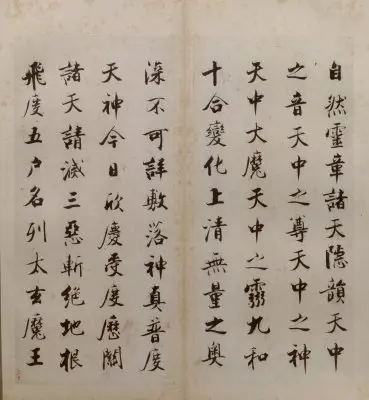 自然靈章諸天隱韻天中
之音天中之尊天中之神
天中大魔天中之靈九和
十合變化上清無量之奧
深不可詳敷落神真普度
天神今日欣慶受度歷關
諸天請滅三惡斬絕地根
飛度五戶名列太玄魔王